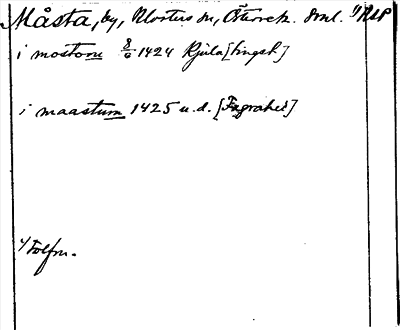 Måsta, by, Klosters sn, Österrek. Sml. 1) RAP
i mostom 8/6 1424 Kjula [tingsh]
i maastum 1425 u.d. [Fogrohed]
1) Tolfm.